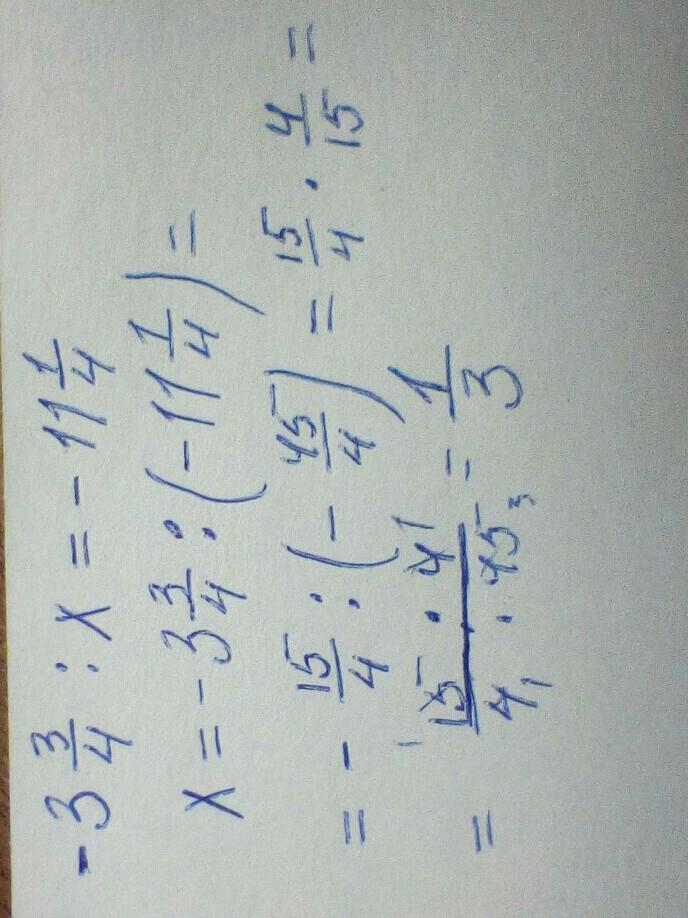 -3 3/4 : x = -11 1/4
x = -3 3/4 : (-11 1/4) =
= - 15/4 : (- 45/4) = 15/4 · 4/15 =
= 15 · 4 / 4 · 45 = 1/3